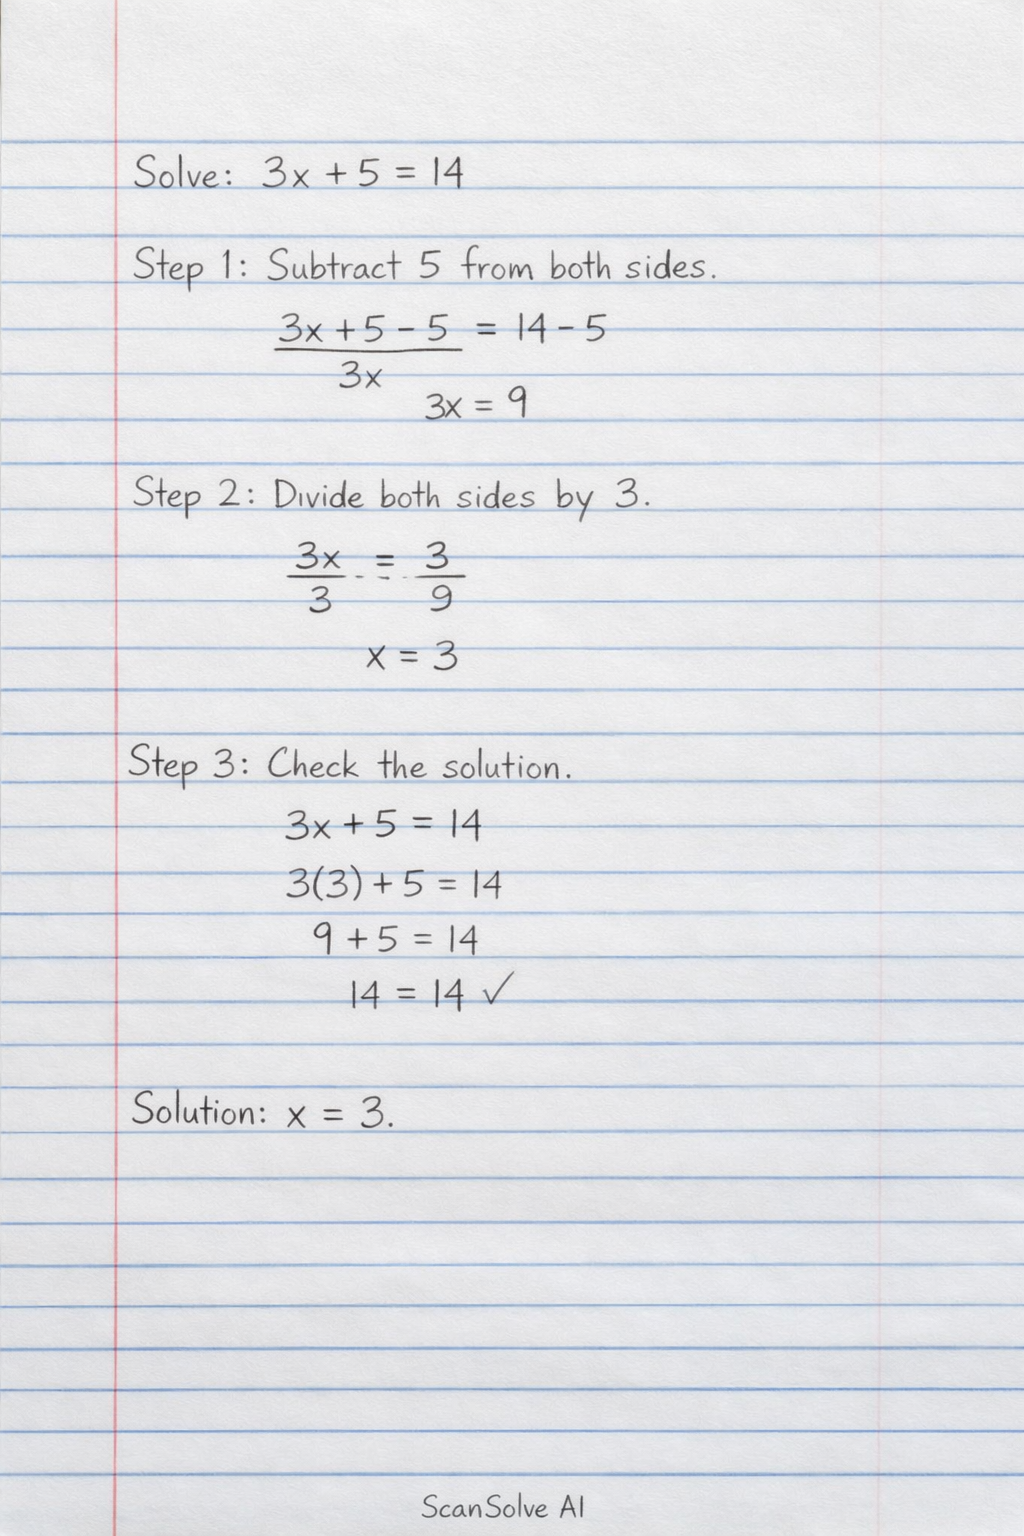 Solve: 3x + 5 = 14
Step 1: Subtract 5 from both sides.
3x + 5 - 5 = 14 - 5
3x
3x = 9
Step 2: Divide both sides by 3.
3x = 3
3 9
x = 3
Step 3: Check the solution.
3x + 5 = 14
3(3) + 5 = 14
9 + 5 = 14
14 = 14 ✓
Solution: x = 3.
ScanSolve AI